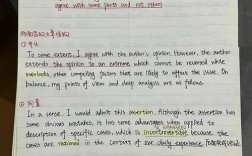 agree with some parts and not others
① 开头
To some extents, I agree with the author's opinion. However, the author
extends the opinion to an extreme which cannot be reversed while
overlooks other competing factors that are likely to affect this issue. On
balance, my points of view and deep analysis are as follows.
② 同意
In a sense, I would admit this assertion. Although the assertion has
some obvious mistakes, it has some advantages when applied to
description of specific cases, which is incontrovertible because the
cases are rational in the context of our daily experience.